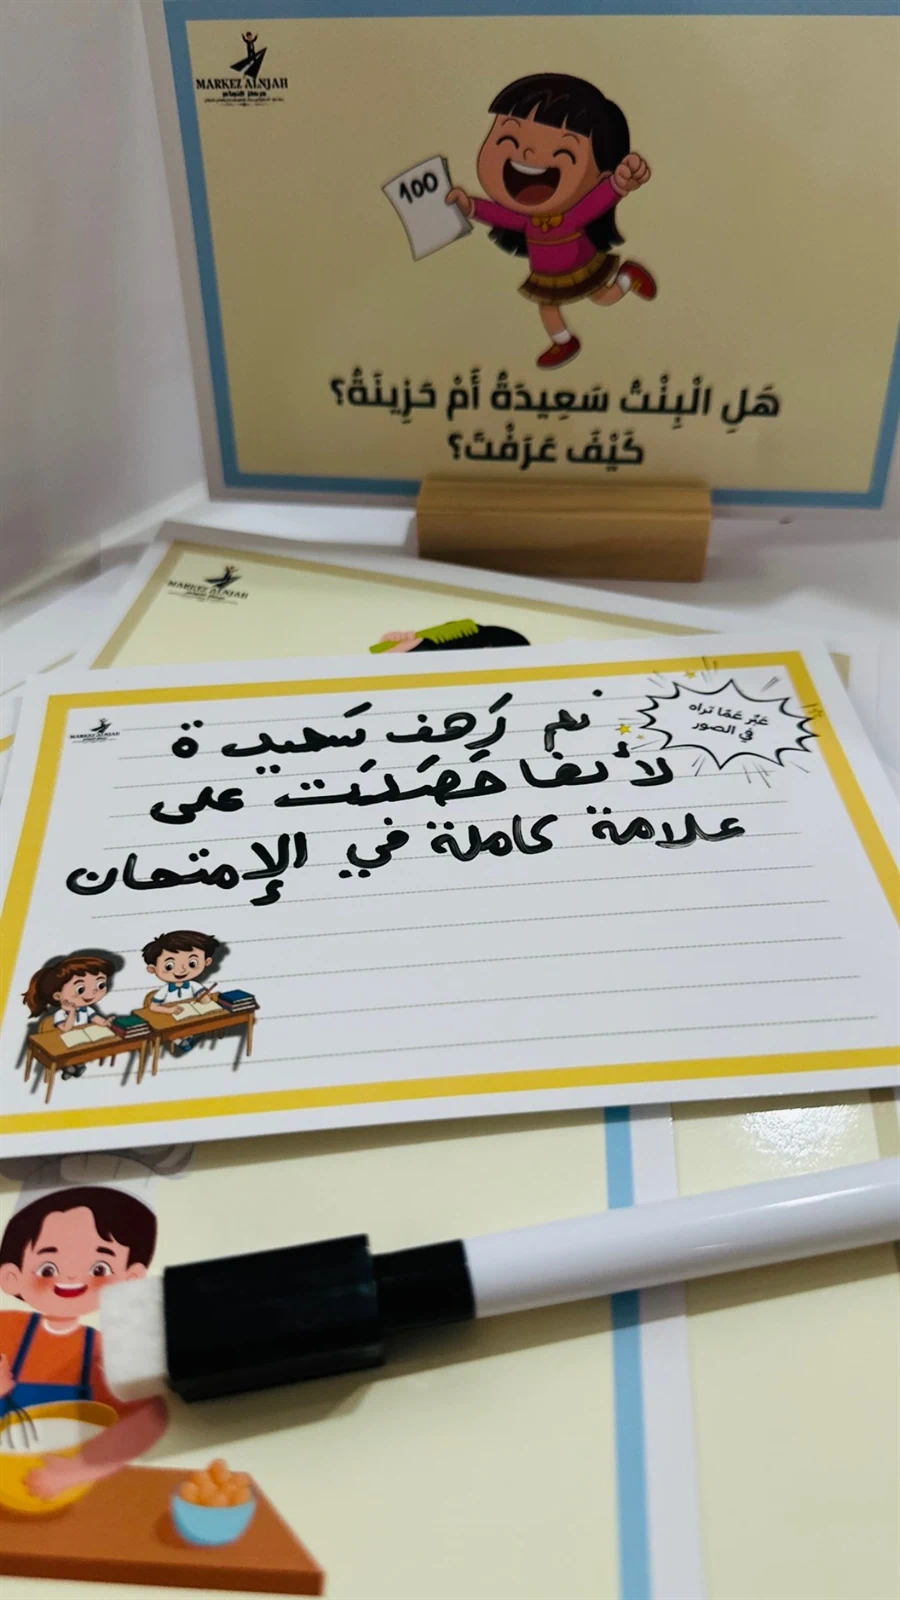 MARKEZ ALNJAH
مركز النجاح
100
هَلِ الْبِنْتُ سَعِيدَةٌ أَمْ حَزِينَةٌ؟
كَيْفَ عَرَفْتَ؟
MARKEZ ALNJAH
MARKEZ ALNJAH
عَبّر عَمّا تراه
في الصور
نعم رَهف سَعيدة
لأنها حَصَلَت على
علامة كاملة في الإمتحان